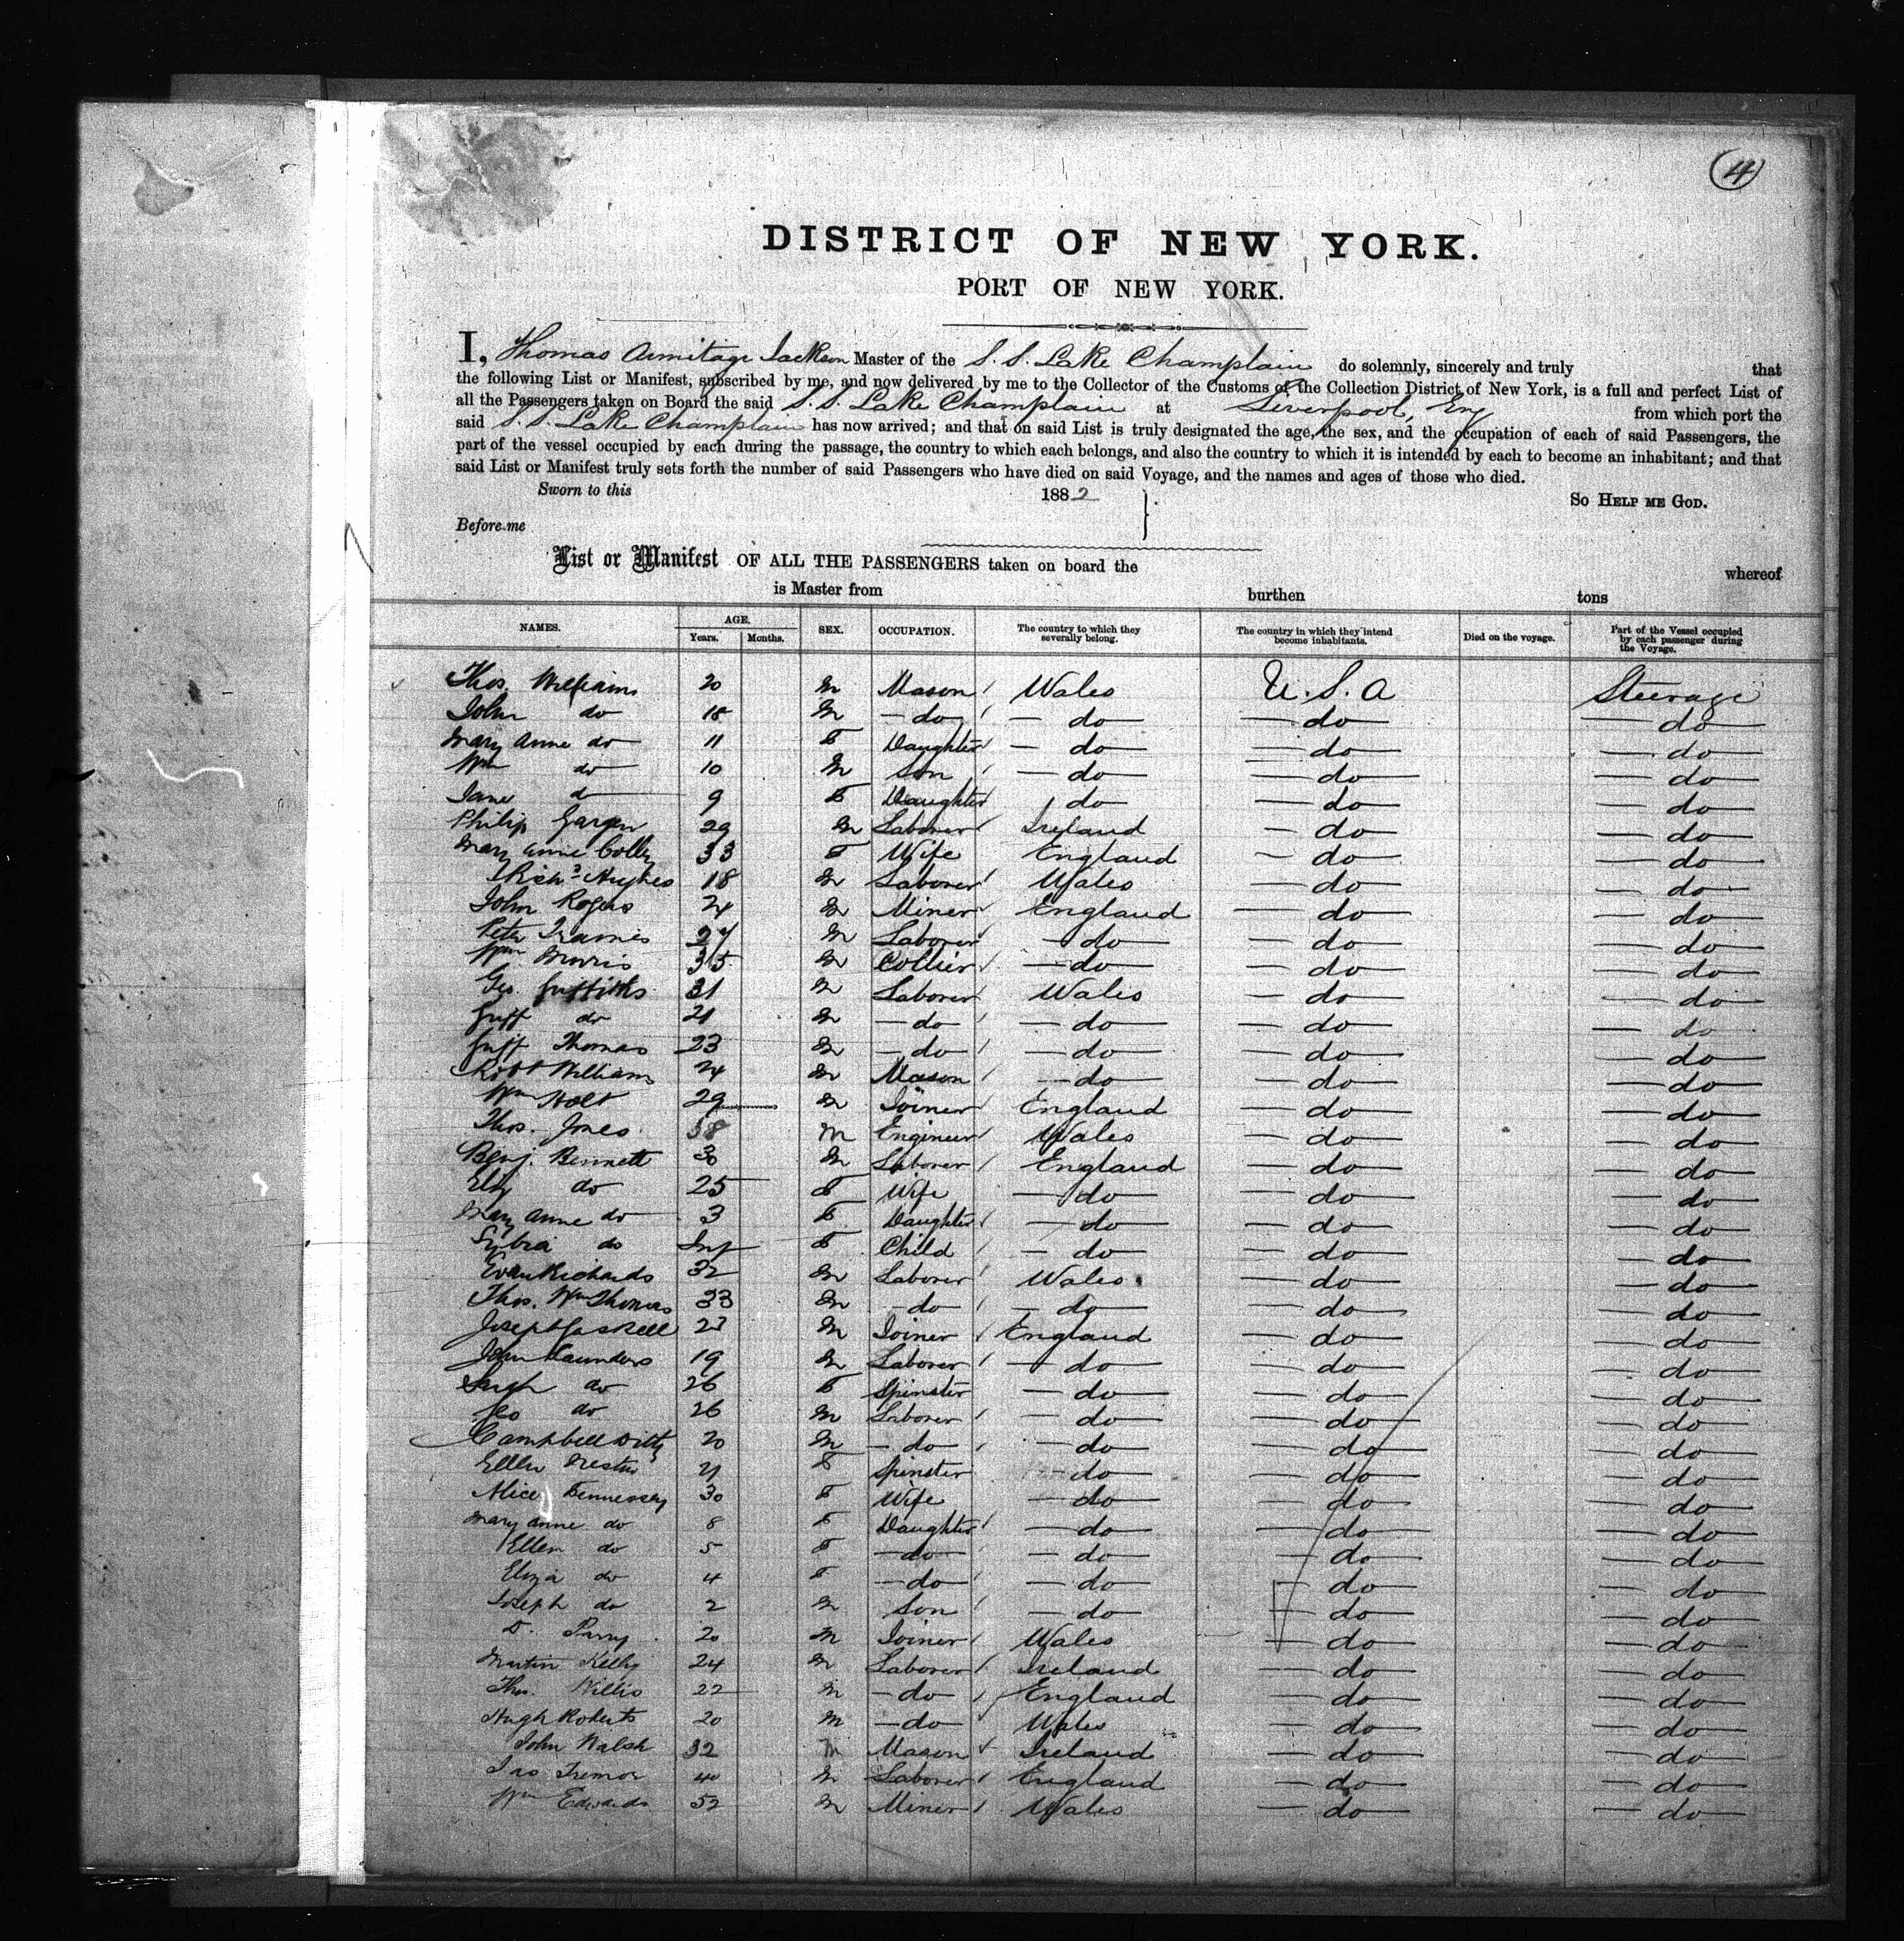 4
DISTRICT OF NEW YORK.
PORT OF NEW YORK.
I, Thomas Armitage Jackson Master of the S. S. Lake Champlain do solemnly, sincerely and truly that
the following List or Manifest, subscribed by me, and now delivered by me to the Collector of the Customs of the Collection District of New York, is a full and perfect List of
all the Passengers taken on Board the said S. S. Lake Champlain at Liverpool, Eng from which port the
said S. S. Lake Champlain has now arrived; and that on said List is truly designated the age, the sex, and the occupation of each of said Passengers, the
part of the vessel occupied by each during the passage, the country to which each belongs, and also the country to which it is intended by each to become an inhabitant; and that
said List or Manifest truly sets forth the number of said Passengers who have died on said Voyage, and the names and ages of those who died.
Sworn to this 1882 So HELP ME GOD.
Before me
List or Manifest OF ALL THE PASSENGERS taken on board the whereof
is Master from burthen tons
NAMES. AGE. Years. Months. SEX. OCCUPATION. The country to which they severally belong. The country in which they intend become inhabitants. Died on the voyage. Part of the Vessel occupied by each passenger during the Voyage.
Thos. Williams 20 M Mason Wales U.S.A Steerage
John do 18 M do do do do
Mary Anne do 11 F Daughter do do do
Wm do 10 M Son do do do
Jane do 9 F Daughter do do do
Philip 29 M Laborer Ireland do do
Mary Anne Colley 33 F Wife England do do
Richd Hughes 18 M Laborer Wales do do
John Rogers 24 M Miner England do do
Peter 27 M Laborer do do do
Wm Morris 35 M Collier do do do
Geo. Griffiths 31 M Laborer Wales do do
Griff do 21 M do do do do
Griff Thomas 23 M do do do do
Robt Williams 24 M Mason do do do
Wm Holt 29 M Joiner England do do
Thos. Jones 38 M Engineer Wales do do
Benj. Bennett 30 M Laborer England do do
Eliz do 25 F Wife do do do
Mary Anne do 3 F Daughter do do do
do Inf F Child do do do
Evan Richards 32 M Laborer Wales do do
Thos. Wm Thomas 23 M do do do do
Joseph Gaskell 23 M Joiner England do do
John Saunders 19 M Laborer do do do
Sarah do 26 F Spinster do do do
Geo do 26 M Laborer do do do
Campbell Ditty 20 M do do do do
Ellen 21 F Spinster do do do
Alice Hennessey 30 F Wife do do do
Mary Anne do 8 F Daughter do do do
Ellen do 5 F do do do do
Eliza do 4 F do do do do
Joseph do 2 M Son do do do
D. Parry 20 M Joiner Wales do do
Martin Kelly 24 M Laborer Ireland do do
Thos. Willis 22 M do England do do
Hugh Roberts 20 M do Wales do do
John Walsh 32 M Mason Ireland do do
Jno 40 M Laborer England do do
Wm Edwards 52 M Miner Wales do do